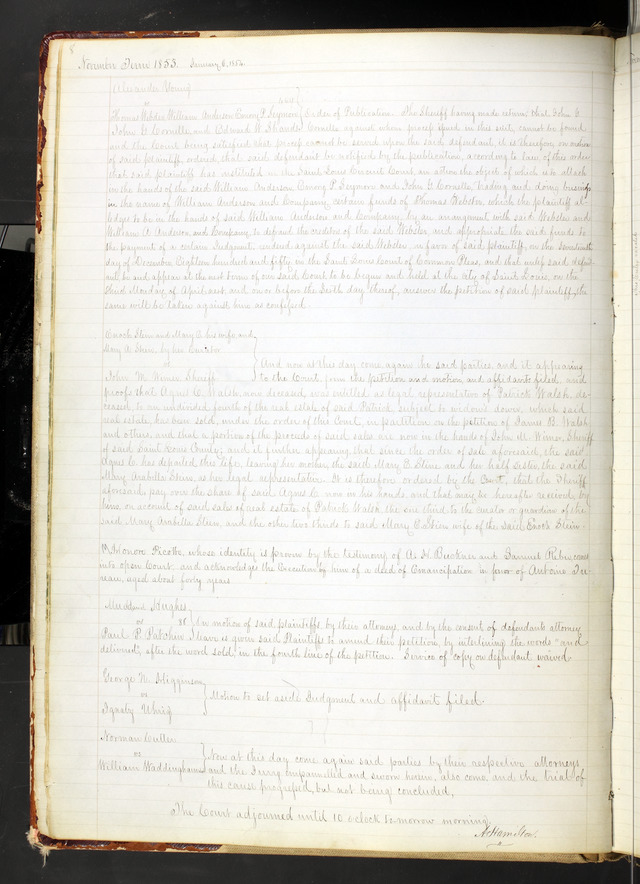 8
November Term 1853. January 6, 1854
Alexander Young
vs
Thomas Webster, William Anderson Conroy P. Seymour Order of Publication. The Sheriff having made return, that John G.
John G. Cornells, and Edward W. Shands Cornells against whom process issued in this suit, cannot be found
and the Court being satisfied that process cannot be served upon the said defendant, it is therefore on motion
of said plaintiff, ordered that said defendant be notified by the publication, according to law of this order
that said plaintiff has instituted in the Saint Louis Circuit Court, an action the object of which is to attach
in the hands of the said William Anderson Conroy P. Seymour and John G. Cornells, trading and doing business
in the name of William Anderson and Company, certain funds of Thomas Webster, which the plaintiff al-
ledges to be in the hands of said William Anderson and Company, by an arrangement with said Webster and
William A. Anderson and Company, to defraud the creditors of the said Webster, and appropriate the said funds to
the payment of a certain Judgment, rendered against the said Webster, in favor of said plaintiff, on the Seventeenth
day of December Eighteen hundred and fifty, in the Saint Louis Court of Common Pleas, and that unless said defend-
ant be and appear at the next term of our said Court to be begun and held at the City of Saint Louis, on the
third Monday of April next, and on or before the Sixth day thereof, answer the petition of said plaintiff, the
same will be taken against him as confessed.
Enoch Stein and Mary E. his wife and
Mary A. Stein, by her Curator
vs
John M. Wimer Sheriff
And now at this day come again the said parties, and it appearing
to the Court, from the petition and motion and affidavits filed, and
proof that Agnes C. Walsh, now deceased, was entitled as legal representative of Patrick Walsh, de-
ceased to an undivided fourth of the real estate of said Patrick, subject to widows dower, which said
real estate, has been sold, under the order of this Court, in partition on the petition of James B. Walsh
and others, and that a portion of the proceeds of said sales are now in the hands of John M. Wimer, Sheriff
of said Saint Louis County; and it further appearing that since the order of sale aforesaid, the said
Agnes C. has departed this life, leaving her mother, the said Mary E. Stein and her half sister the said
Mary Arabella Stein, as her legal representatives. It is therefore ordered by the Court, that the Sheriff
aforesaid, pay over the share of said Agnes C. now in his hands, and that may be hereafter received by
him, on account of said sales of real estate of Patrick Walsh, the one third to the curator or guardian of the
said Mary Arabella Stein, and the other two thirds to said Mary E. Stein wife of the said Enoch Stein.
Honore Picotte, whose identity is proven by the testimony of A. H. Buckner and Samuel Rubin, comes
into open Court and acknowledges the Execution by him of a deed of Emancipation in favor of Antoine
aged about forty years
Hughes
vs 88
Paul P.
On motion of said plaintiffs by their attorney and by the consent of defendants attorney
leave is given said Plaintiffs to amend their petition, by interlining the words "and
delivered", after the word sold, in the fourth line of the petition. Service of copy on defendant waived
George N. Higginson
vs
Ignatz Uhrig
Motion to set aside Judgment and affidavit filed.
Norman Cutter
vs
William Waddingham
Now at this day come again said parties by their respective attorneys
and the Jurry empannelled and sworn herein, also come, and the trial of
this cause progressed, but not being concluded,
The Court adjourned until 10 oclock to-morrow morning.
A Hamilton.